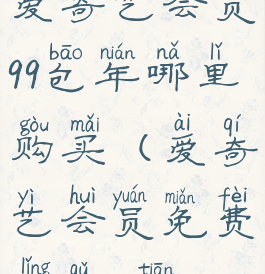 爱奇艺会员
bāo nián nǎ lǐ
99包年哪里
gòu mǎi ài qí
购买(爱奇
yì huì yuán miǎn fèi
艺会员免费
lǐng tiān